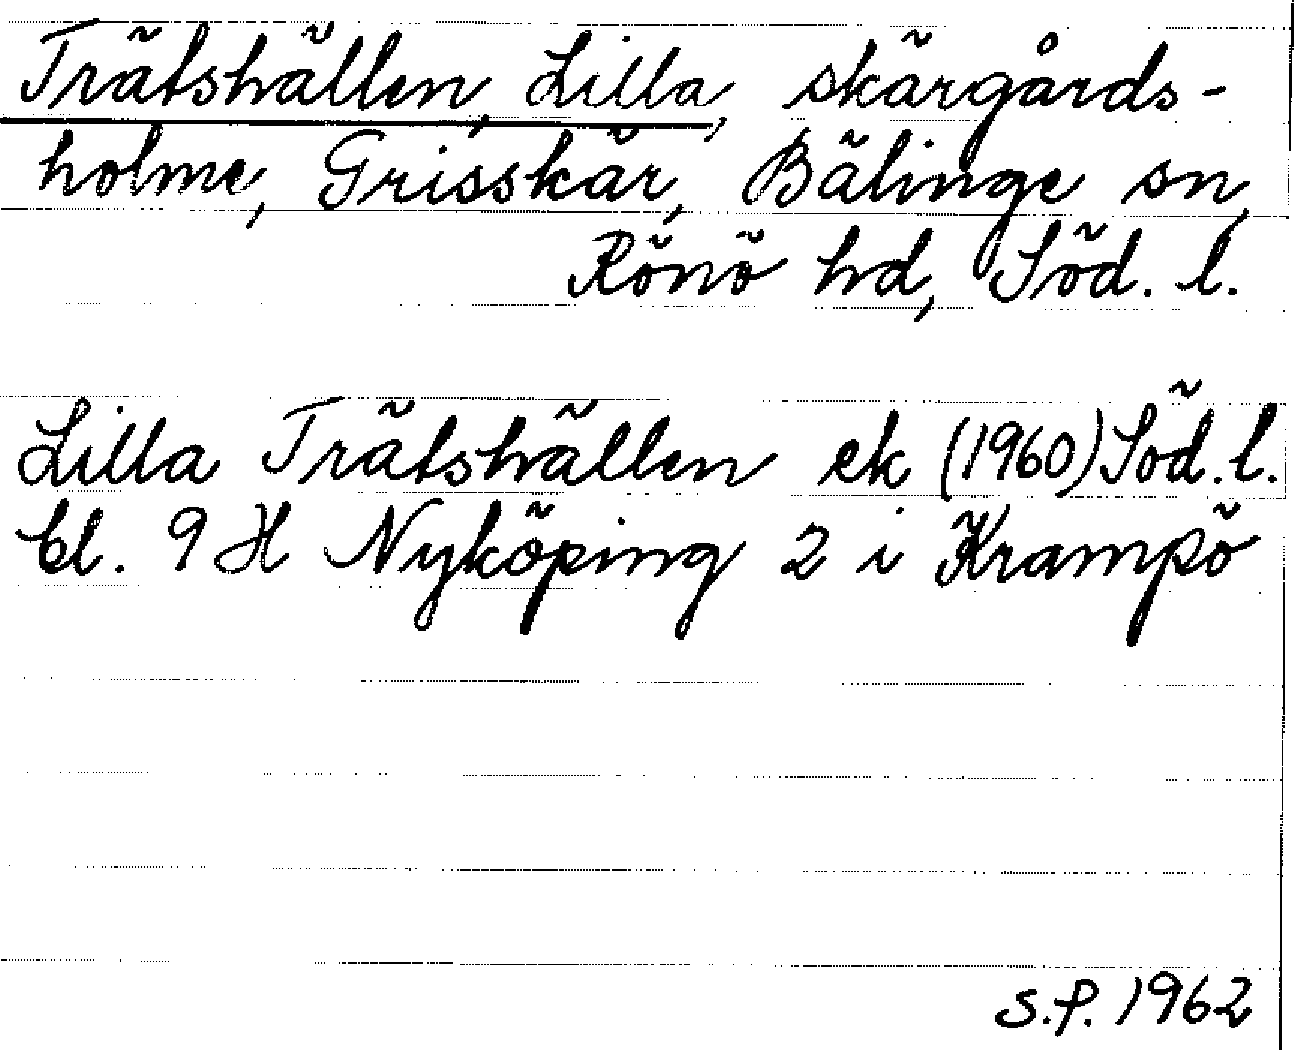 Trätshällen, Lilla, skärgårds-
holme, Grisskär, Bälinge sn,
Rönö hd, Söd. l.
Lilla Trätshällen ek (1960) Söd. l.
bl. 9 H Nyköping 2 i Krampö
S.P. 1962